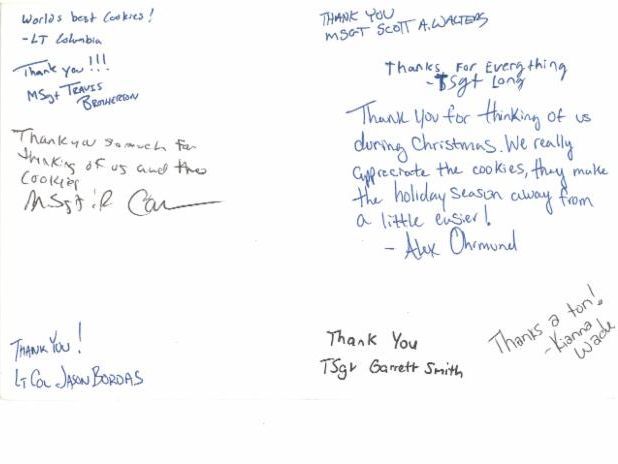 Worlds best Cookies!
-LT Columbia
Thank you!!!
MSgt TRAVIS
BROTHERTON
Thank you so much for
thinking of us and the
cookies
MSgt
THANK YOU!
LT COL JASON BORDAS
THANK YOU
MSGT SCOTT A. WALTERS
Thanks For Everything
-TSgt Long
Thank you for thinking of us
during Christmas. We really
appreciate the cookies, they make
the holiday season away from
a little easier!
- Alex Ohrmund
Thank You
TSgt Garrett Smith
Thanks a ton!
-Kianna
Wade